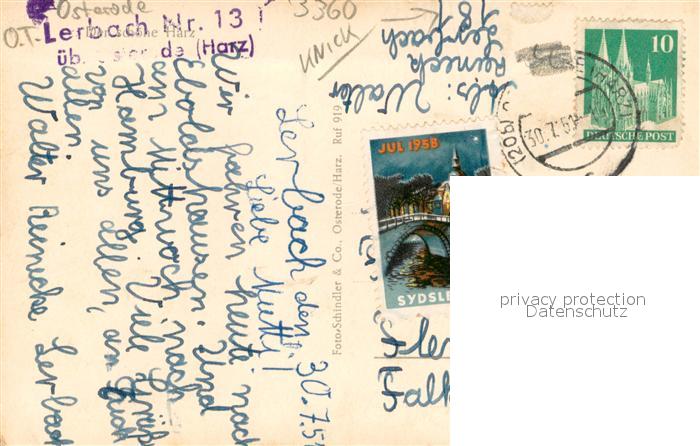 Osterode
3360
O.T.
Lerbach Nr. 13 !
Der schöne Harz
(Harz)
UNICK
Abs: Walter
Reinecke
Lerbach
78
10
DEUTSCHE POST
(HARZ)
30.7.51
JUL 1958
SYDSLE
Lerbach den 30.7.51
Liebe Mutti!
Wir fahren heute nach
Eboldshausen. Und
am Mittwoch nach
Hamburg. Viel Grüße
von uns allen, an Euch
allen.
Walter Reinecke Lerbach
Foto-Schindler & Co., Osterode/Harz. Ruf 919
Falk
privacy protection
Datenschutz